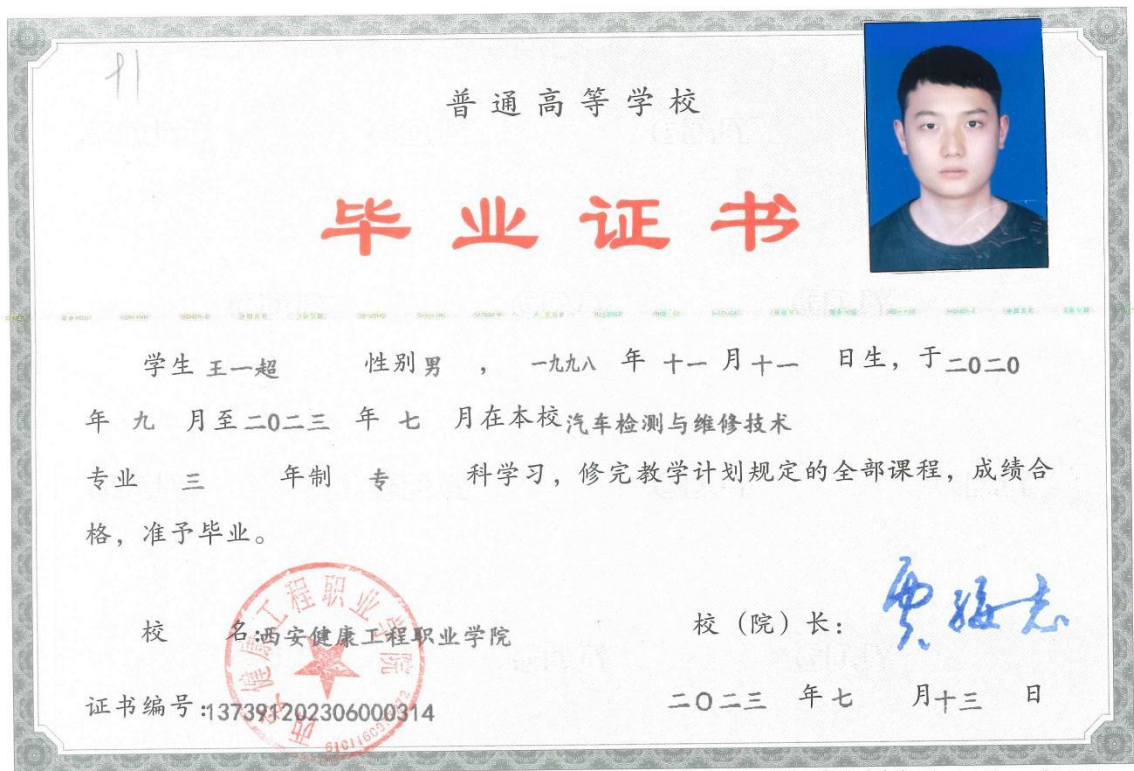 普通高等学校
毕业证书
学生 王一超 性别 男 , 一九九八 年 十一 月 十一 日生, 于二0二0
年 九 月至二0二三 年 七 月在本校汽车检测与维修技术
专业 三 年制 专 科学习, 修完教学计划规定的全部课程, 成绩合
格, 准予毕业。
校 名:西安健康工程职业学院 校（院）长: 贾缠志
证书编号:137391202306000314 二〇二三 年七 月十三 日
西安健康工程职业学院